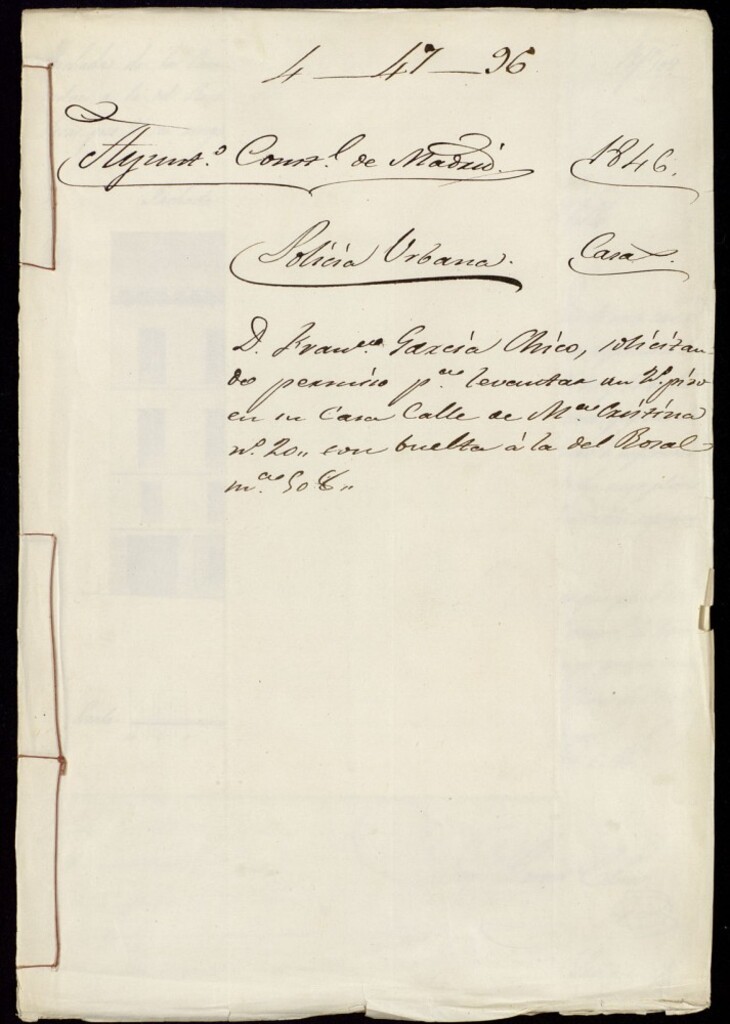 4—47—96
Ayunt.º Const.l de Madrid. 1846.
Policia Urbana. Casas.
D. Fran.co García Chico, solicitan-
do permiso p.a levantar un 2.º piso
en su Casa Calle de M.a Cristina
n.º 20,, con buelta á la del Rosal
m.na 508,,